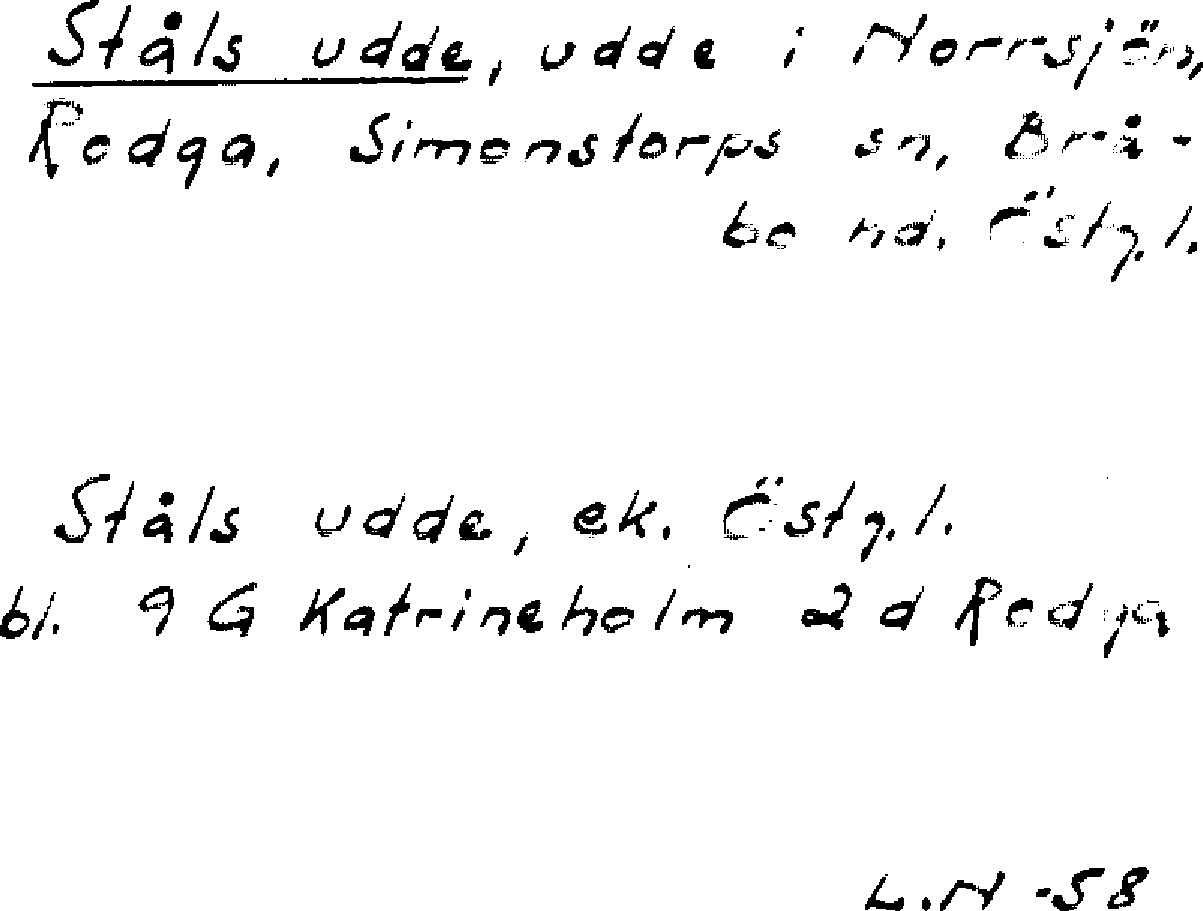 Ståls udde, udde i Norrsjön,
Rodga, Simonstorps sn, Brå-
bo hd. Östg.l.
Ståls udde, ek. Östg.l.
bl. 9 G Katrineholm 2 d Rodga
L.N -58